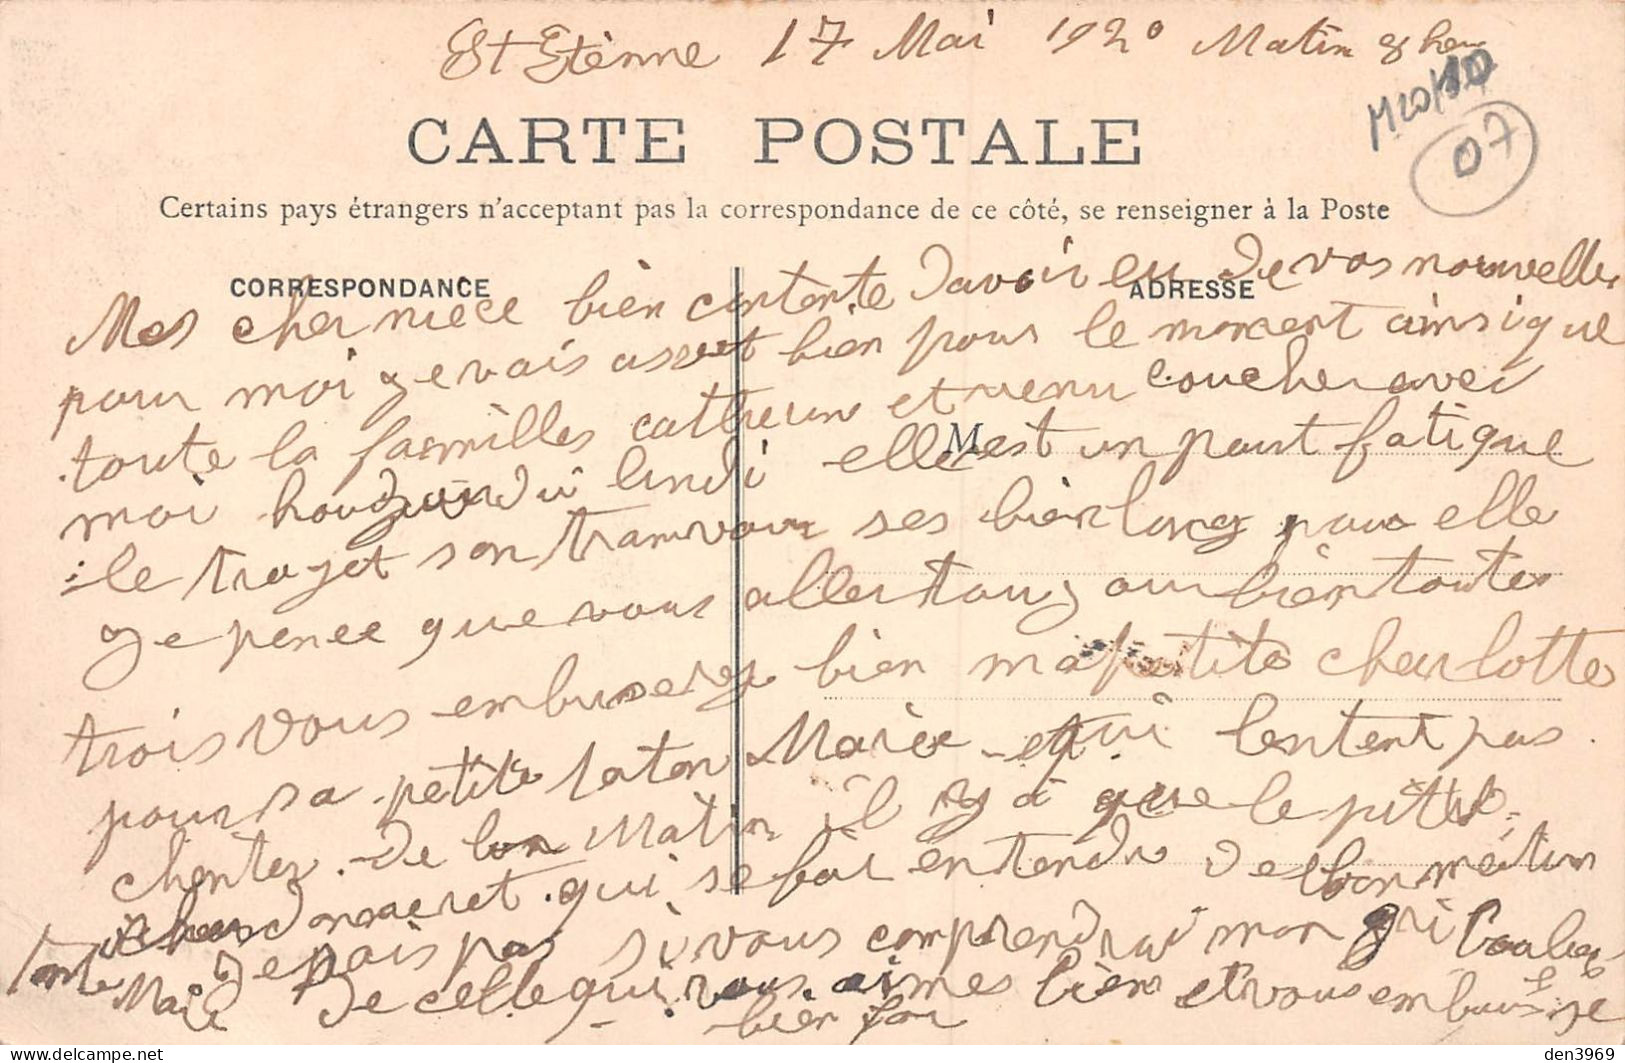 St Etènne 17 Mai 1920 Matin 8 heu
07
CARTE POSTALE
Certains pays étrangers n'acceptant pas la correspondance de ce côté, se renseigner à la Poste
CORRESPONDANCE
ADRESSE
Mes cher niece bièn contente Davoir eu De vos nouvelles
pour moi ge vais asset bien pour le moment ainsi que
toute la familles et venu coucher avec
M
moi lundi elle est un pout fatigue
le trajet son tramvour ses bièn long pour elle
ge pence que vous aller tous our bièn toutes
trois vous emburserez bien ma petite charlotte
pour sa petite taton Marèe et qui lentent pas
chenter De bon Matin il ny a que le petit
qui se fai entendre De bon metin
ge sais pas si vous comprendrai mon gri
Tante Marè De celle qui vous aimes bièn et vous embursse
bien for
den3969